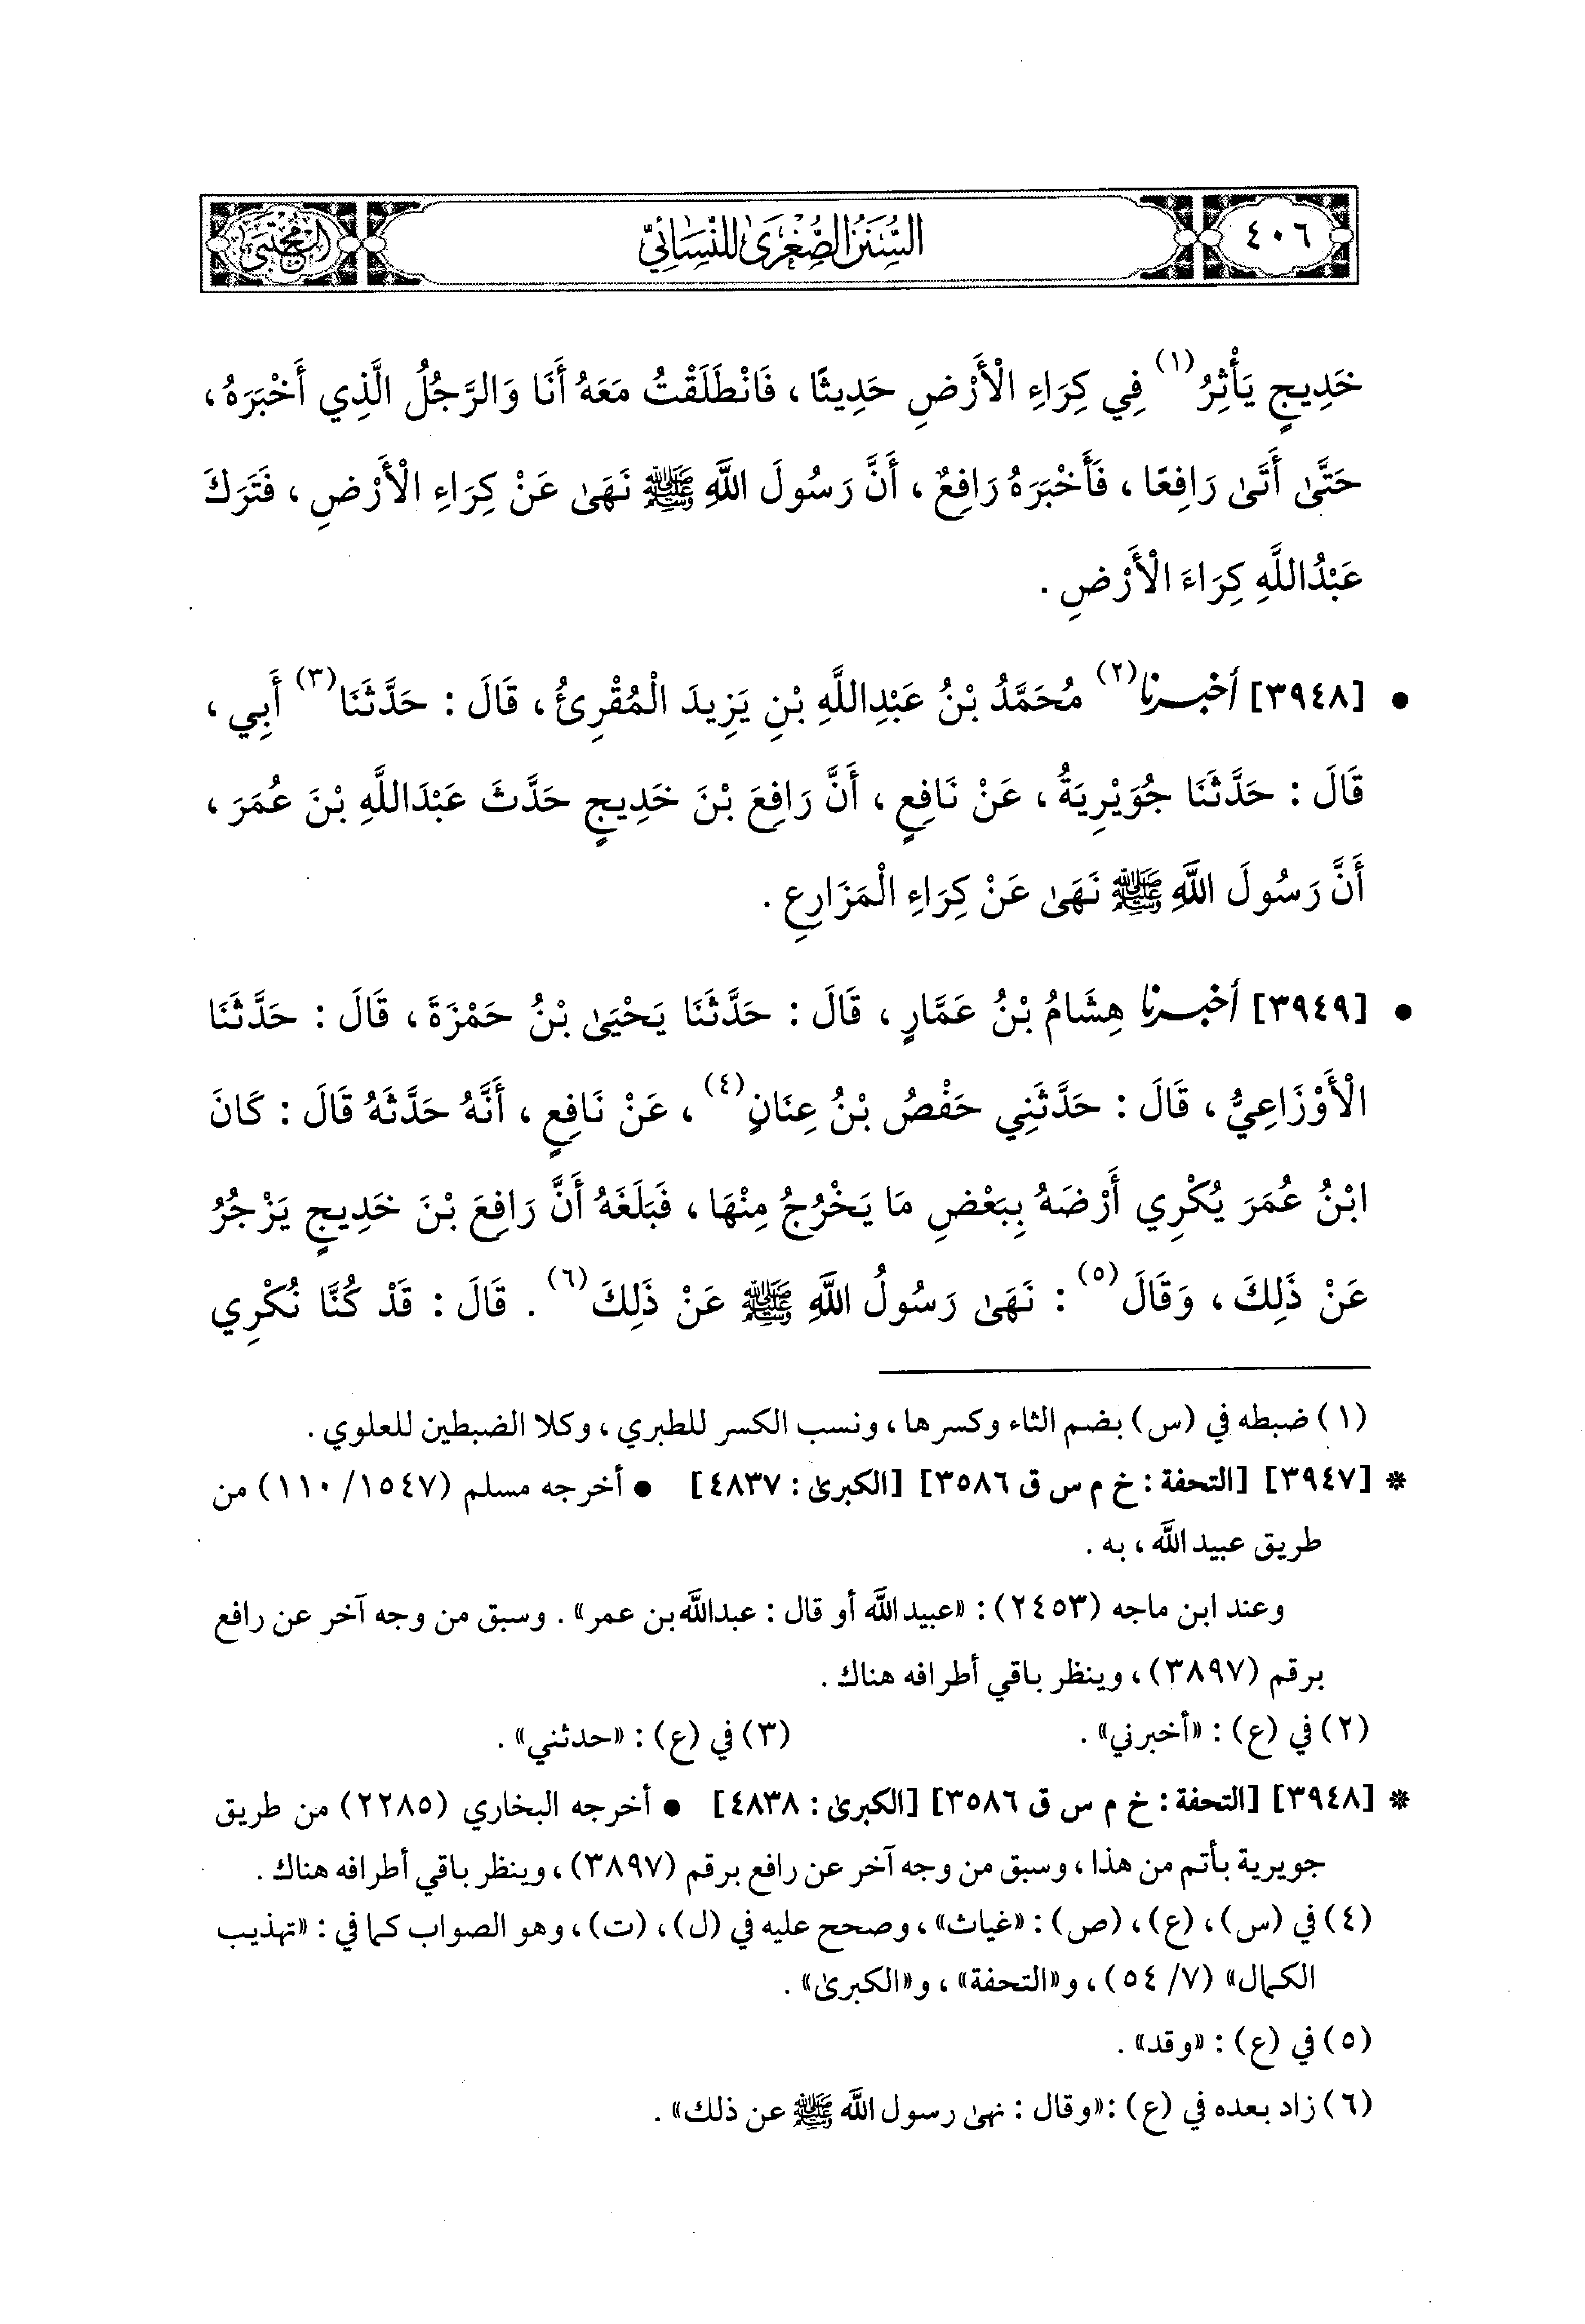 ٤٠٦
السُّنَنُ الصُّغْرَىٰ لِلنَّسَائِيِّ
المجتبى
خَدِيجٍ يَأْثِرُ(١) فِي كِرَاءِ الْأَرْضِ حَدِيثًا ، فَانْطَلَقْتُ مَعَهُ أَنَا وَالرَّجُلُ الَّذِي أَخْبَرَهُ ،
حَتَّىٰ أَتَىٰ رَافِعًا ، فَأَخْبَرَهُ رَافِعٌ ، أَنَّ رَسُولَ اللَّهِ ﷺ نَهَىٰ عَنْ كِرَاءِ الْأَرْضِ ، فَتَرَكَ
عَبْدُاللَّهِ كِرَاءَ الْأَرْضِ .
• [٣٩٤٨] أخبرنا(٢) مُحَمَّدُ بْنُ عَبْدِاللَّهِ بْنِ يَزِيدَ الْمُقْرِئُ ، قَالَ : حَدَّثَنَا(٣) أَبِي ،
قَالَ : حَدَّثَنَا جُوَيْرِيَةُ ، عَنْ نَافِعٍ ، أَنَّ رَافِعَ بْنَ خَدِيجٍ حَدَّثَ عَبْدَاللَّهِ بْنَ عُمَرَ ،
أَنَّ رَسُولَ اللَّهِ ﷺ نَهَىٰ عَنْ كِرَاءِ الْمَزَارِعِ .
• [٣٩٤٩] أخبرنا هِشَامُ بْنُ عَمَّارٍ ، قَالَ : حَدَّثَنَا يَحْيَىٰ بْنُ حَمْزَةَ ، قَالَ : حَدَّثَنَا
الْأَوْزَاعِيُّ ، قَالَ : حَدَّثَنِي حَفْصُ بْنُ عِنَانٍ(٤) ، عَنْ نَافِعٍ ، أَنَّهُ حَدَّثَهُ قَالَ : كَانَ
ابْنُ عُمَرَ يُكْرِي أَرْضَهُ بِبَعْضِ مَا يَخْرُجُ مِنْهَا ، فَبَلَغَهُ أَنَّ رَافِعَ بْنَ خَدِيجٍ يَزْجُرُ
عَنْ ذَلِكَ ، وَقَالَ(٥) : نَهَىٰ رَسُولُ اللَّهِ ﷺ عَنْ ذَلِكَ(٦) . قَالَ : قَدْ كُنَّا نُكْرِي
(١) ضبطه في (س) بضم الثاء وكسرها ، ونسب الكسر للطبري ، وكلا الضبطين للعلوي .
* [٣٩٤٧] [التحفة : خ م س ق ٣٥٨٦] [الكبرىٰ : ٤٨٣٧] • أخرجه مسلم (١٥٤٧/ ١١٠) من
طريق عبيد اللَّه ، به .
وعند ابن ماجه (٢٤٥٣) : «عبيد اللَّه أو قال : عبداللَّه بن عمر» . وسبق من وجه آخر عن رافع
برقم (٣٨٩٧) ، وينظر باقي أطرافه هناك .
(٢) في (ع) : «أخبرني» . (٣) في (ع) : «حدثني» .
* [٣٩٤٨] [التحفة : خ م س ق ٣٥٨٦] [الكبرىٰ : ٤٨٣٨] • أخرجه البخاري (٢٢٨٥) من طريق
جويرية بأتم من هذا ، وسبق من وجه آخر عن رافع برقم (٣٨٩٧) ، وينظر باقي أطرافه هناك .
(٤) في (س) ، (ع) ، (ص) : «غياث» ، وصحح عليه في (ل) ، (ت) ، وهو الصواب كما في : «تهذيب
الكمال» (٧/ ٥٤) ، و«التحفة» ، و«الكبرىٰ» .
(٥) في (ع) : «وقد» .
(٦) زاد بعده في (ع) :«وقال : نهىٰ رسول اللَّه ﷺ عن ذلك» .